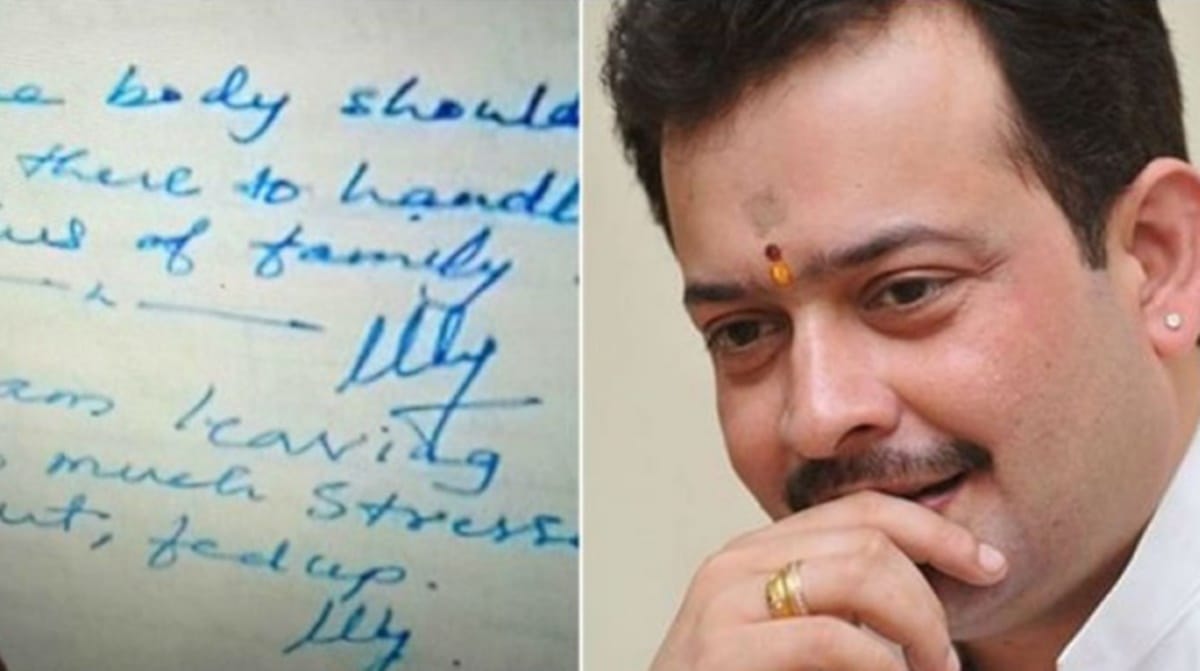 body should
there to handl
us of family.
am leaving
much Stresse
ut, fed up.